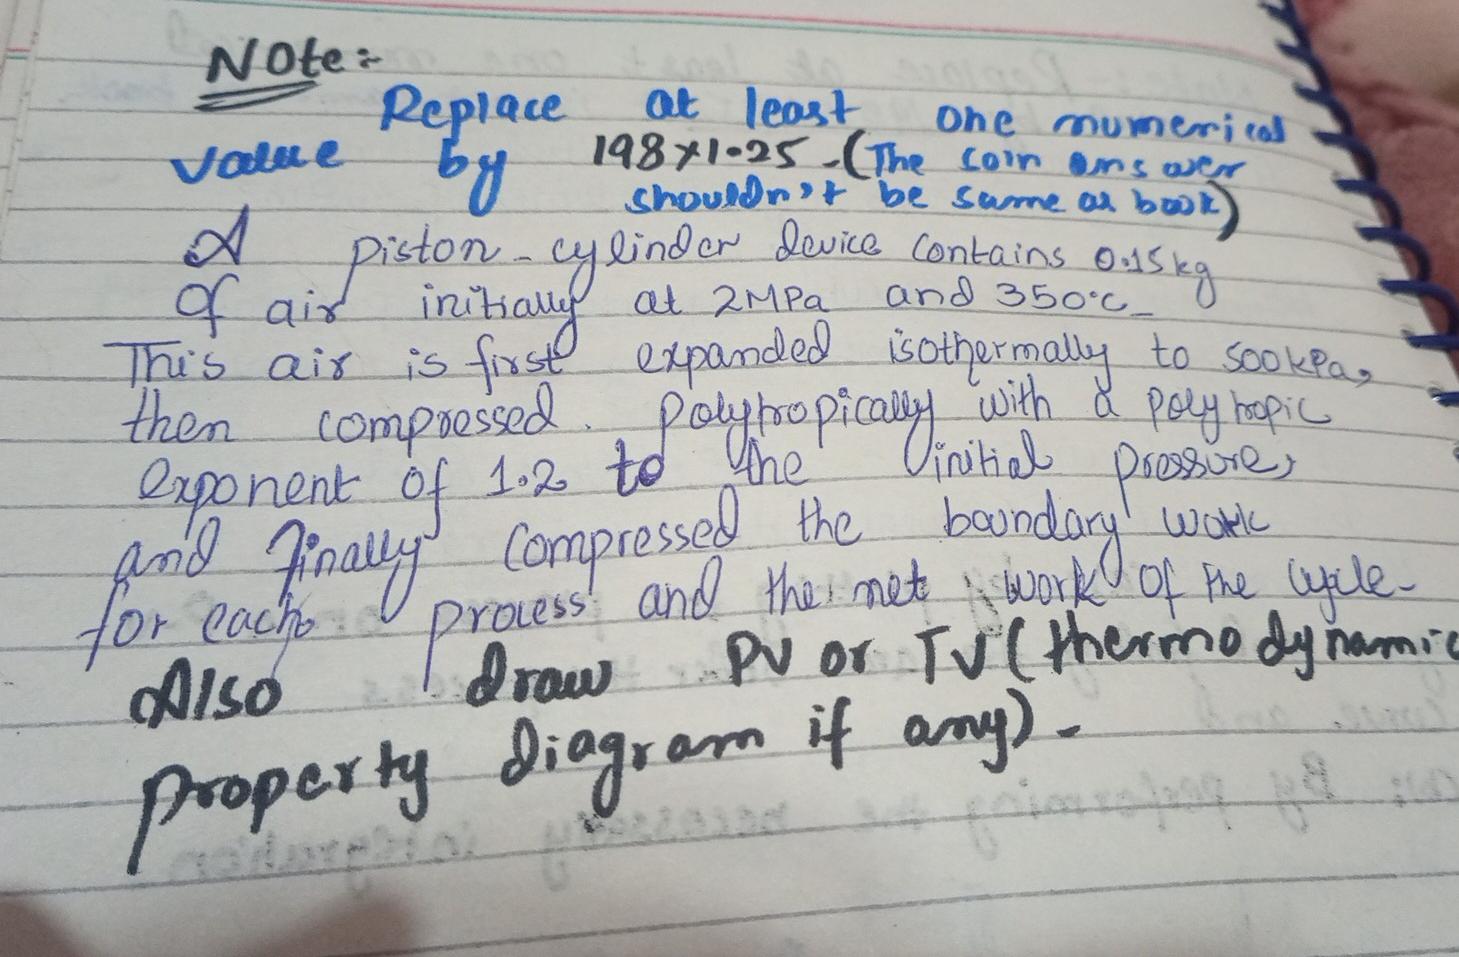 Note:-
Replace at least one numerical
value by 198×1.25 -(The coin answer
shouldn't be same as book)
A piston-cylinder device contains 0.15kg
of air initially at 2MPa and 350°C_
This air is first expanded isothermally to 500kPa,
then compressed. polytropically with a polytropic
exponent of 1.2 to the initial pressure,
and finally compressed the boundary work
for each process and the net work of the cycle-
Also draw PV or TV (thermodynamic
property diagram if any)-